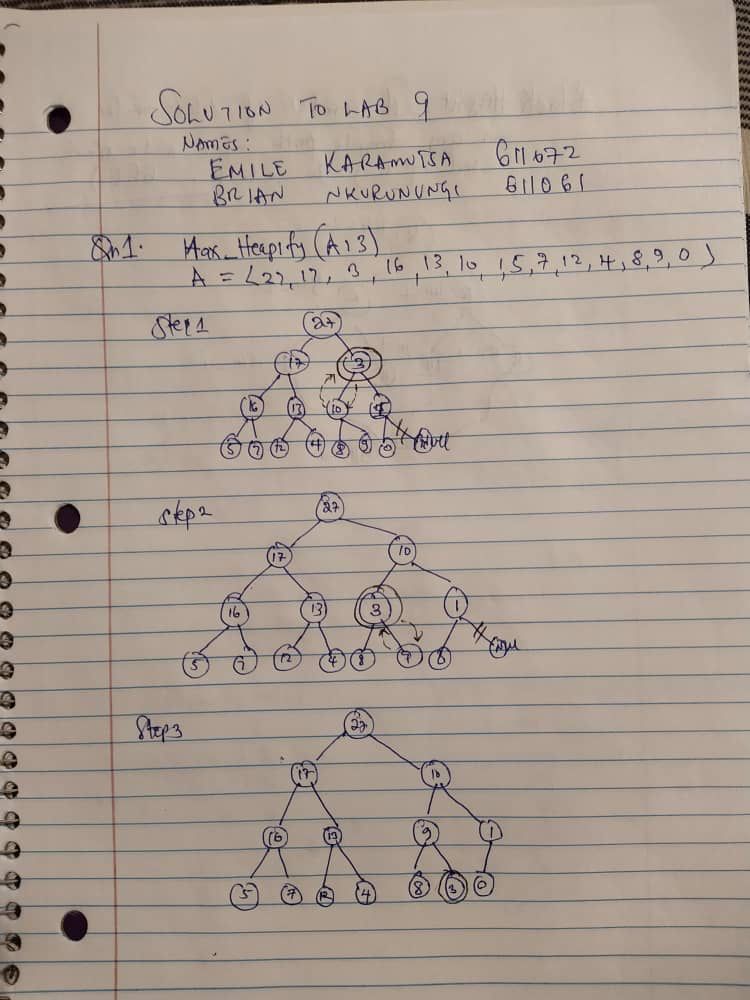 SOLUTION TO LAB 9
NAMES:
EMILE KARAMUTSA 611672
BRIAN NKURUNUNGI 611061
Qn1. Max_Heapify (A,3)
A = <27, 17, 3, 16, 13, 10, 1, 5, 7, 12, 4, 8, 9, 0>
Step1
27
17 3
16 13 10 1
5 7 12 4 8 9 0 Null
Step2
27
17 10
16 13 3 1
5 7 12 4 8 9 0
Step3
27
17 10
16 13 9 1
5 7 12 4 8 3 0